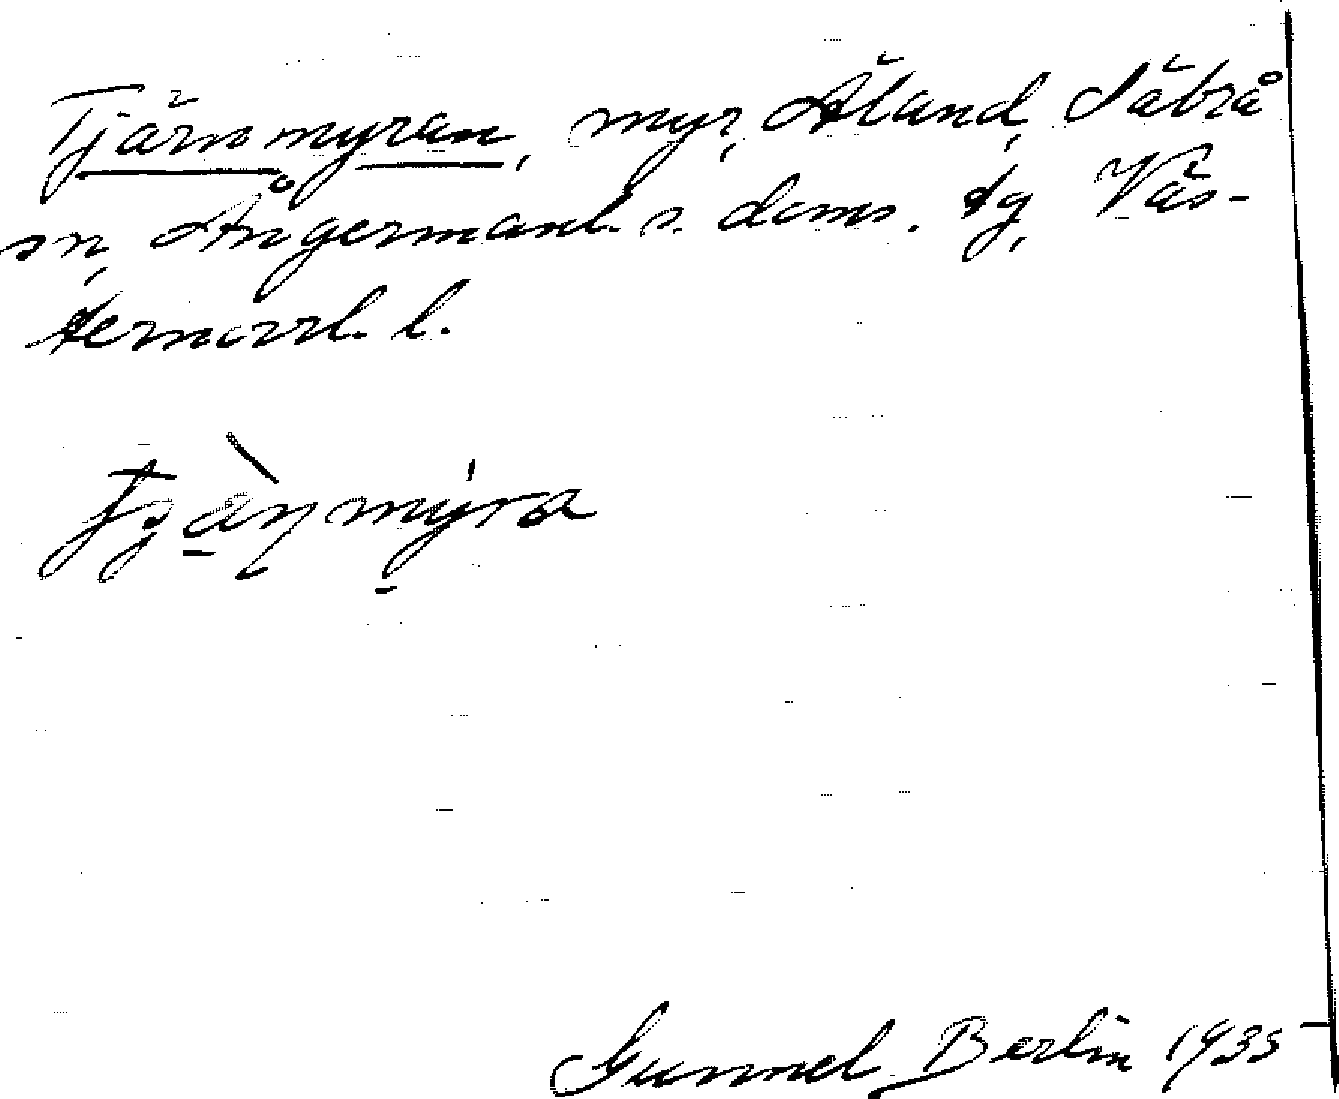 Tjärnmyran, myr, Äland, Säbrå
sn, Ångermanl. s. doms. tg, Väs-
ternorrl. l.
Gunnel Berlin 1935